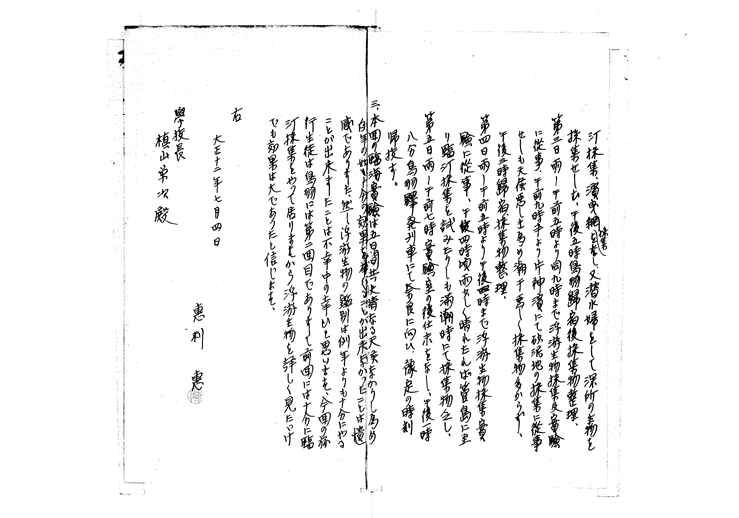 汀採集、濱曳網採集をなし、又潜水婦をして深所の生物を
採集せしむ、午後五時鳥羽歸宿後採集物整理、
第三日 雨 午前五時より同九時まで浮游生物採集及實驗
に從事、午前九時半より片神濱にて砂泥地の採集に從事
せしも天候悪しき為め潮干悪しく採集物多からず、
午後三時歸宿、採集物整理、
第四日 雨 午前五時より午後四時まで浮游生物採集實
驗に從事、午後四時頃雨少しく晴れたれば菅島に至
り臨汀採集を試みたりしも満潮時にて採集物乏し、
第五日 雨 午前七時實驗室の後仕末をなし、午後一時
八分鳥羽驛發列車にて奈良に向ひ、豫定の時刻
歸校す。
三、本回の臨海實驗は五日間共決濟なる天候なかりし為め
例年の如き十分の効果を収むることが出来なかつたことは遺
感でありました、然し浮游生物の鑑別は例年よりも十分にやる
ことが出来ましたことは不幸中の幸ひと思ひます、今回の旅
行生徒は鳥羽には第二回目でありまして前回には十分に臨
汀採集をやつて居りますから浮游生物を詳しく見たゞけ
でも効果は大であつたと信じます、
右
大正十二年七月四日
惠利 惠
學校長
槇山榮次殿